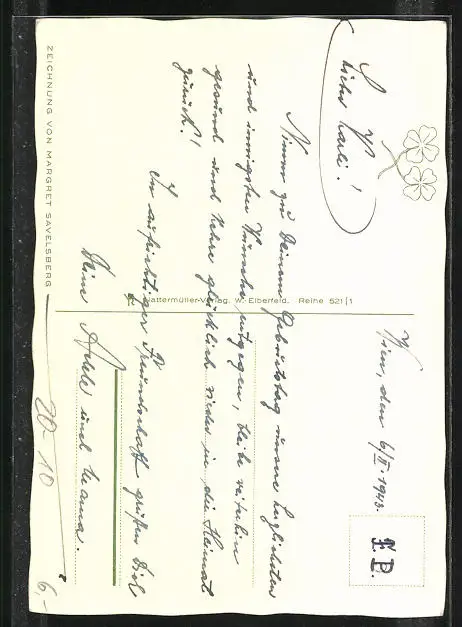 Wien, den 6/II. 1943.
Lieber Karli!
Nimm zu Deinem Geburtstag unsere herzlichsten
und innigsten Wünsche entgegen, bleibe weiterhin
gesund und kehre glücklich wieder in die Heimat
zurück!
In aufrichtiger Freundschaft grüßen Dich
Deine und Mama.
ZEICHNUNG VON MARGRET SAVELSBERG
Hattermüller-Verlag, W.-Elberfeld. Reihe 521/1
20-10
6,-